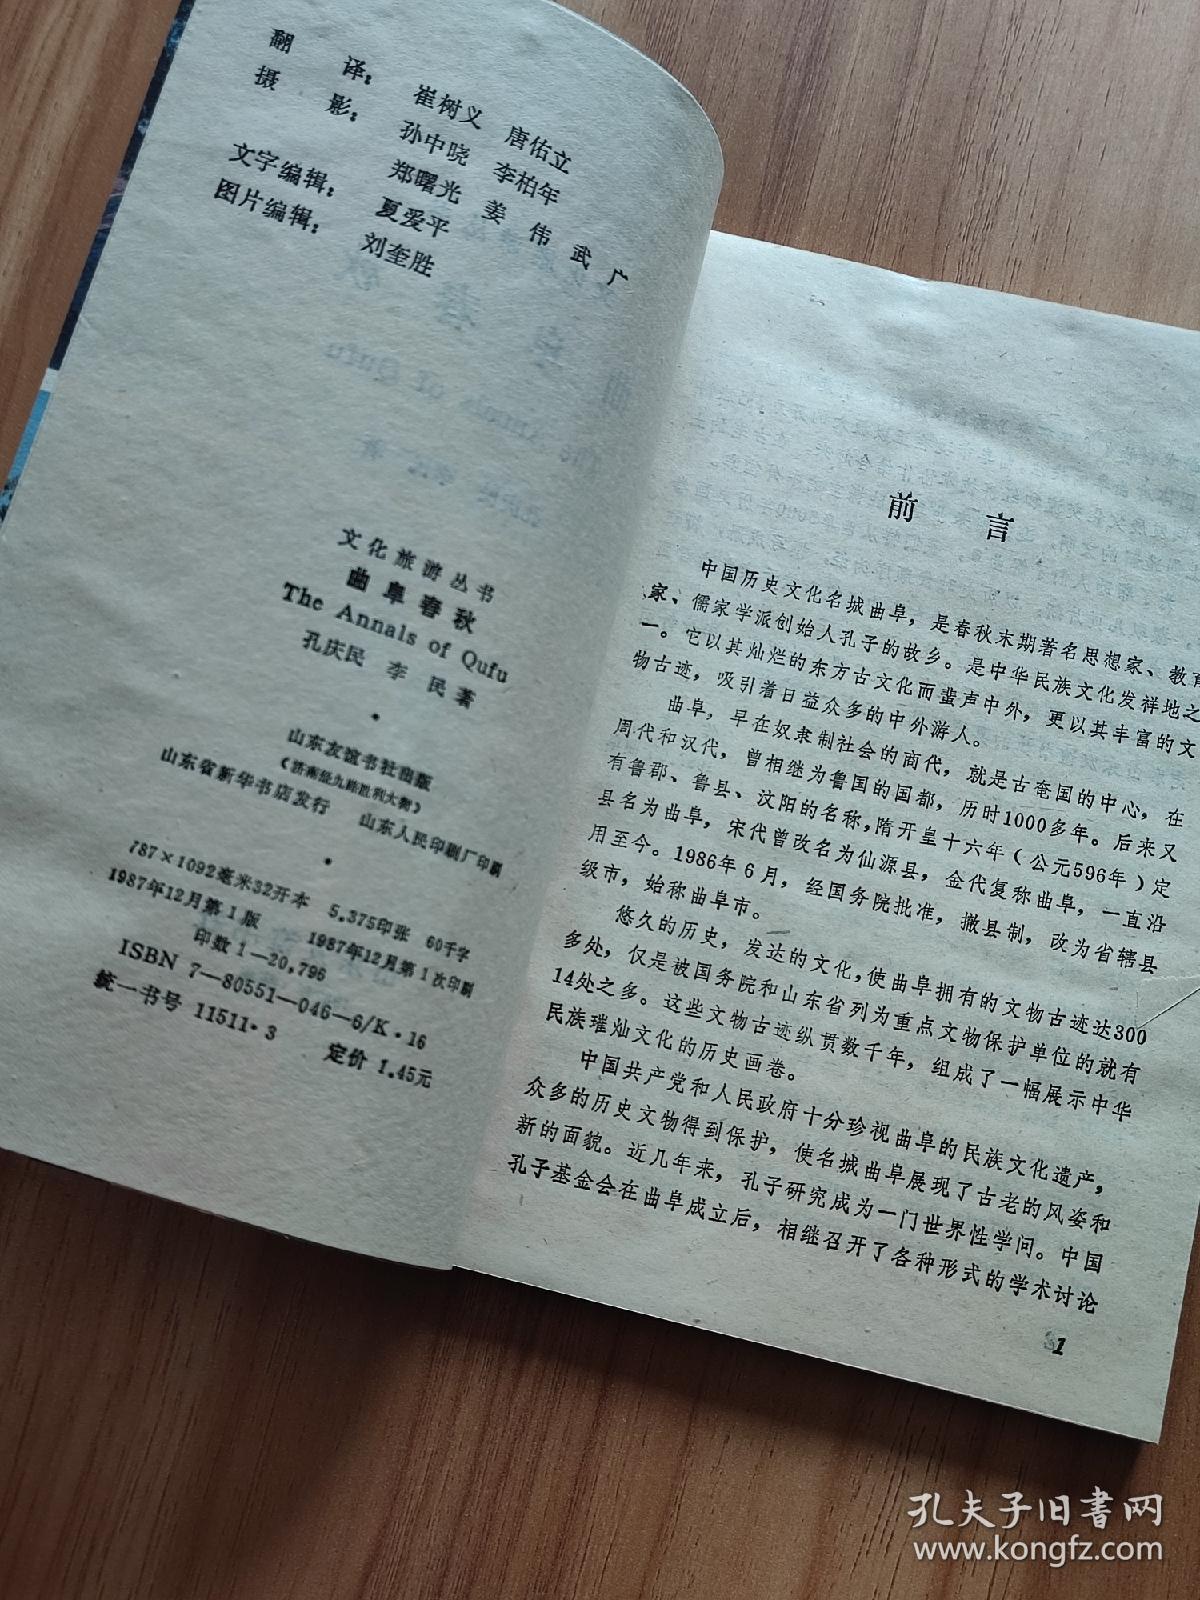 翻　　译：崔树义　唐佑立
摄　　影：孙中晓　李柏年
郑曙光　姜　伟　武　广
文字编辑：夏爱平
图片编辑：刘奎胜
文化旅游丛书
曲阜春秋
The Annals of Qufu
孔庆民　李　民著
山东友谊书社出版
（济南经九路胜利大街）
山东省新华书店发行　山东人民印刷厂印刷
787×1092毫米32开本　5.375印张　60千字
1987年12月第1版　1987年12月第1次印刷
印数1—20,796
ISBN 7—80551—046—6/K·16
统一书号　11511·3　定价　1.45元
前　言
中国历史文化名城曲阜，是春秋末期著名思想家、教育
家、儒家学派创始人孔子的故乡。是中华民族文化发祥地之
一。它以其灿烂的东方古文化而蜚声中外，更以其丰富的文
物古迹，吸引着日益众多的中外游人。
曲阜，早在奴隶制社会的商代，就是古奄国的中心，在
周代和汉代，曾相继为鲁国的国都，历时1000多年。后来又
有鲁郡、鲁县、汶阳的名称，隋开皇十六年（公元596年）定
县名为曲阜，宋代曾改名为仙源县，金代复称曲阜，一直沿
用至今。1986年6月，经国务院批准，撤县制，改为省辖县
级市，始称曲阜市。
悠久的历史，发达的文化，使曲阜拥有的文物古迹达300
多处，仅是被国务院和山东省列为重点文物保护单位的就有
14处之多。这些文物古迹纵贯数千年，组成了一幅展示中华
民族璀灿文化的历史画卷。
中国共产党和人民政府十分珍视曲阜的民族文化遗产，
众多的历史文物得到保护，使名城曲阜展现了古老的风姿和
新的面貌。近几年来，孔子研究成为一门世界性学问。中国
孔子基金会在曲阜成立后，相继召开了各种形式的学术讨论
1
孔夫子旧书网
www.kongfz.com